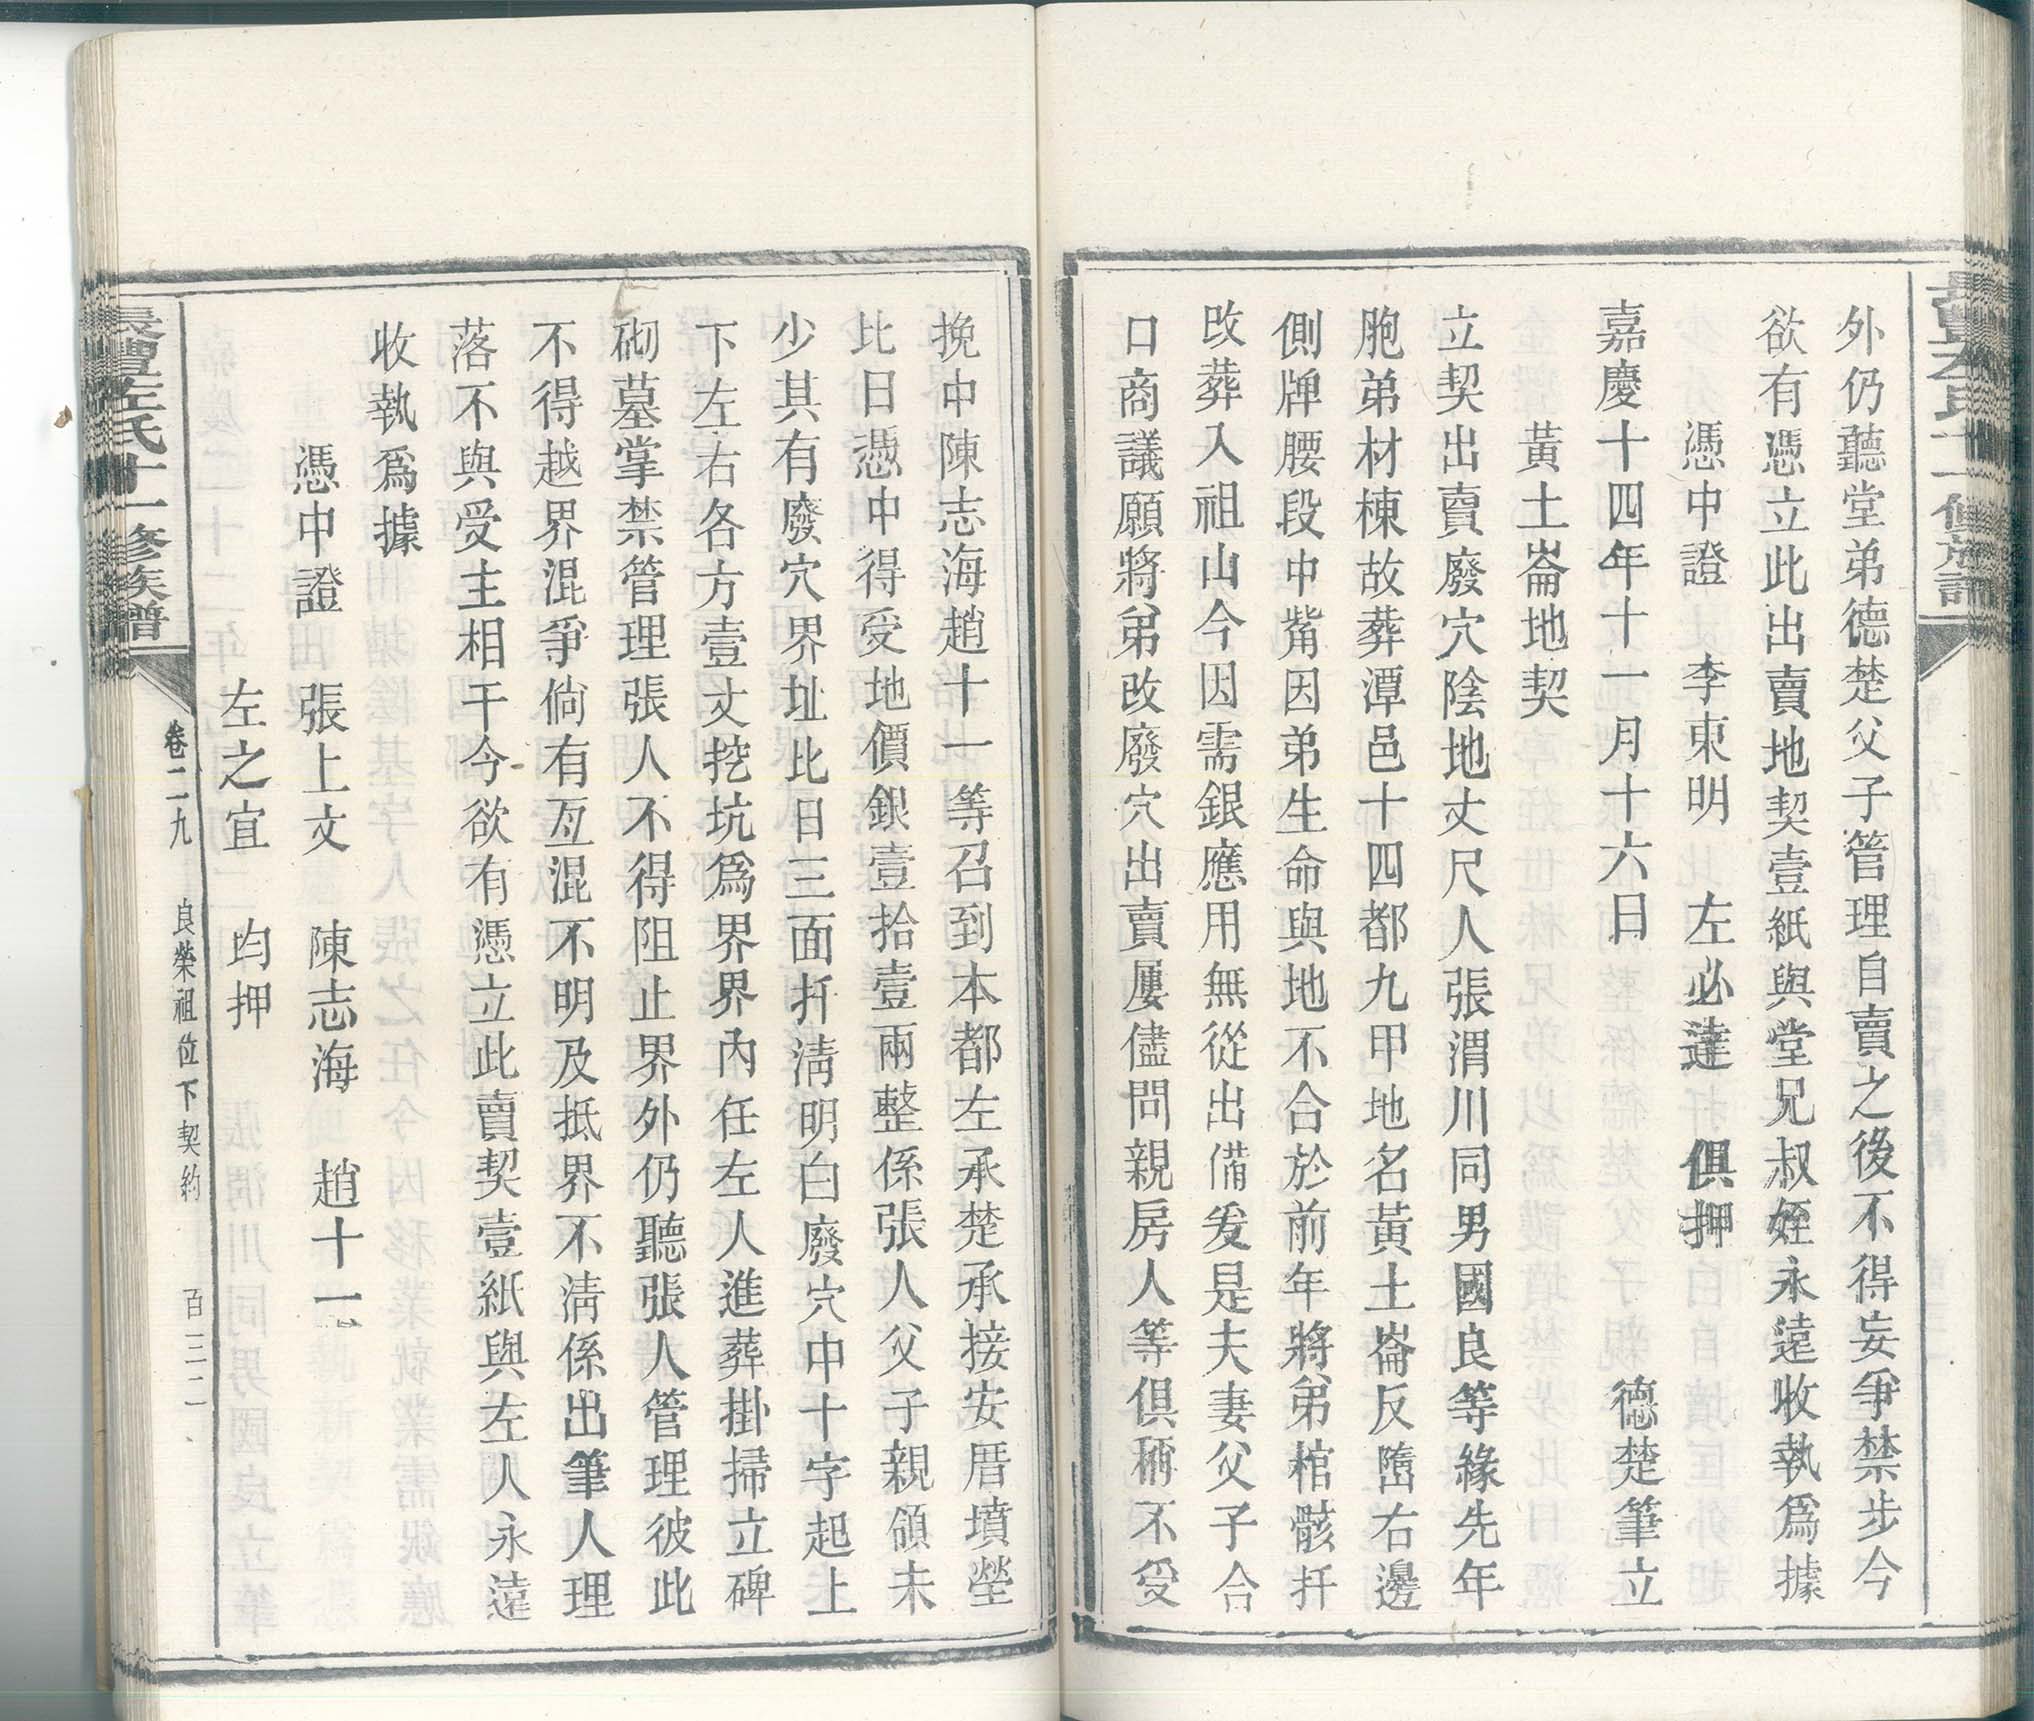 外仍聽堂弟德楚父子管理自賣之後不得妄爭禁步今
欲有憑立此出賣地契壹紙與堂兄叔姪永遠收執爲據
憑中證　李東明　左必達　俱押
嘉慶十四年十一月十六日　德楚筆立
黃土崙地契
立契出賣廢穴陰地丈尺人張渭川同男國良等緣先年
胞弟材棟故葬潭邑十四都九甲地名黃土崙反嶞右邊
側牌腰段中觜因弟生命與地不合於前年將弟棺骸扦
改葬入祖山今因需銀應用無從出備爰是夫妻父子合
口商議願將弟改廢穴出賣屢儘問親房人等俱稱不受
挽中陳志海趙十一等召到本都左承楚承接安厝墳塋
比日憑中得受地價銀壹拾壹兩整係張人父子親領未
少其有廢穴界址比日三面扦淸明白廢穴中十字起上
下左右各方壹丈挖坑爲界界內任左人進葬掛掃立碑
砌墓掌禁管理張人不得阻止界外仍聽張人管理彼此
不得越界混爭倘有互混不明及抵界不淸係出筆人理
落不與受主相干今欲有憑立此賣契壹紙與左人永遠
收執爲據
憑中證　張上文　陳志海　趙十一
左之宜　均押
長灃左氏十一修族譜　卷二九　良榮祖位下契約　百三二